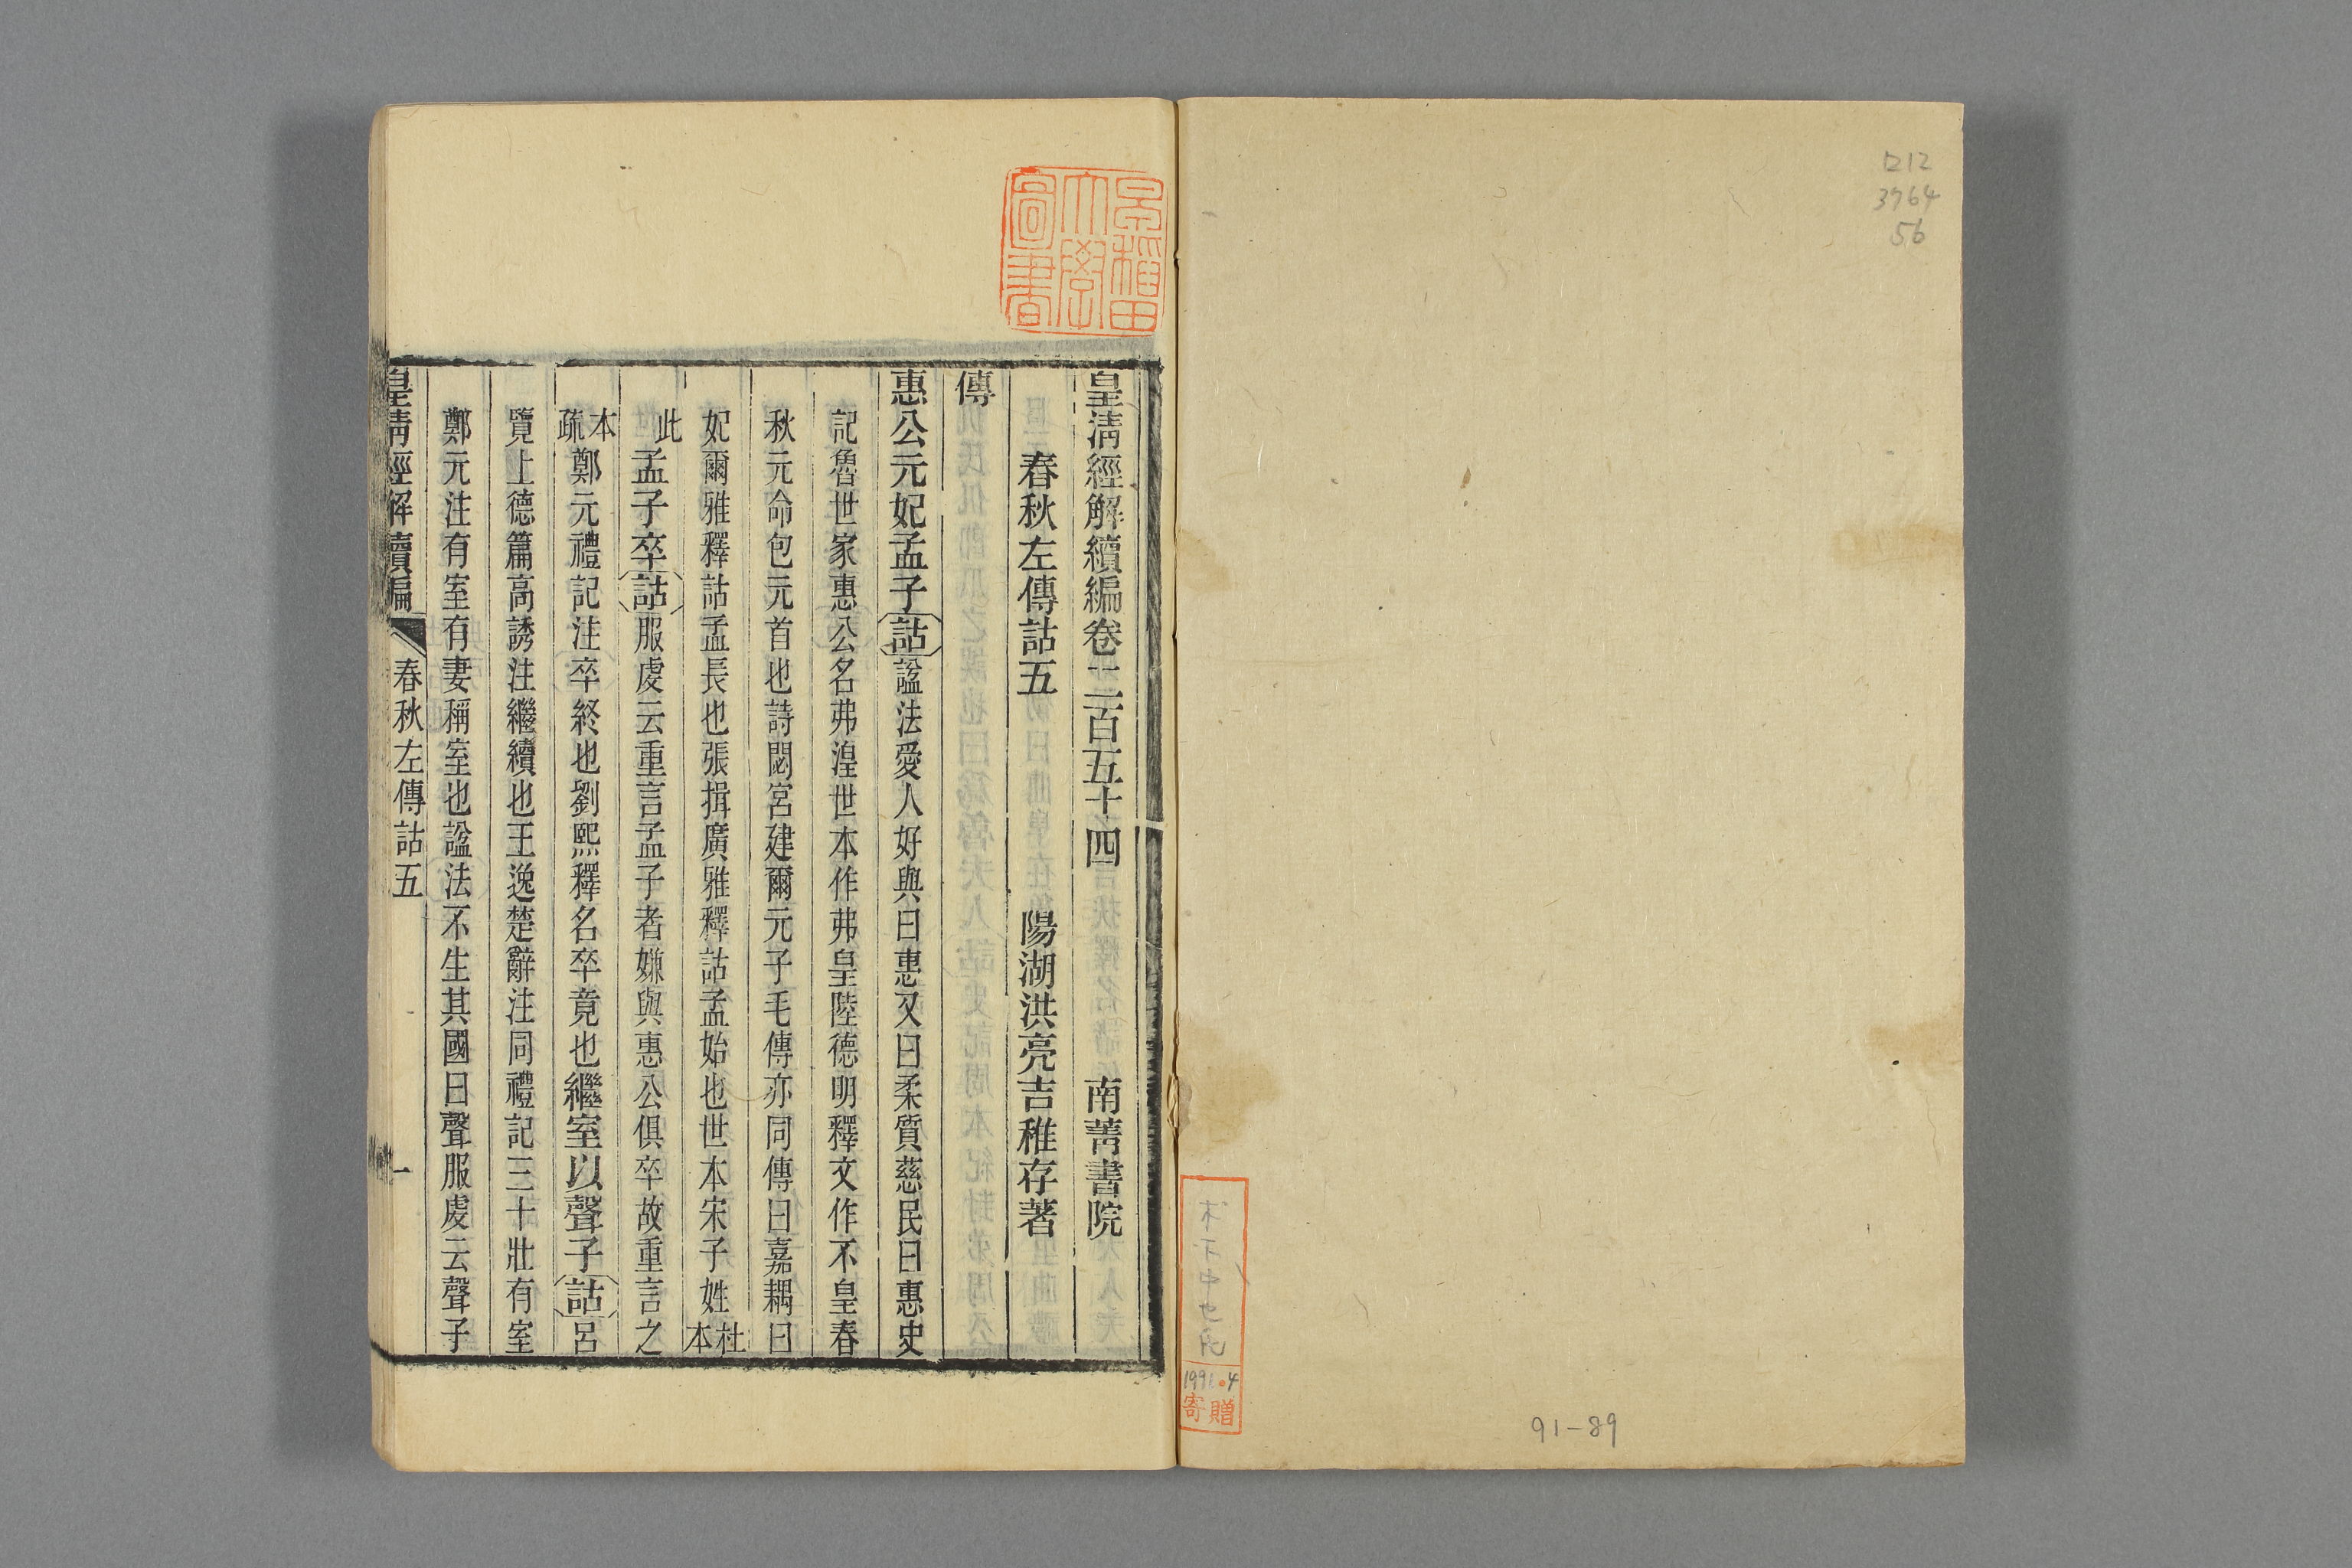 ロ12
3764
56
1991.4
寄贈
91-89
早稲田大學圖書
皇清經解續編卷二百五十四 南菁書院
春秋左傳詁五 陽湖洪亮吉稚存著
傳
惠公元妃孟子詁諡法愛人好與曰惠又曰柔質慈民曰惠史
記魯世家惠公名弗湟世本作弗皇陸德明釋文作不皇春
秋元命包元首也詩閟宮建爾元子毛傳亦同傳曰嘉耦曰
妃爾雅釋詁孟長也張揖廣雅釋詁孟始也世本宋子姓杜本
此孟子卒詁服虔云重言孟子者嫌與惠公俱卒故重言之
本疏鄭元禮記注卒終也劉熙釋名卒竟也繼室以聲子詁呂
覽上德篇高誘注繼續也王逸楚辭注同禮記三十壯有室
鄭元注有室有妻稱室也諡法不生其國曰聲服虔云聲子
皇清經解續編 春秋左傳詁五 一